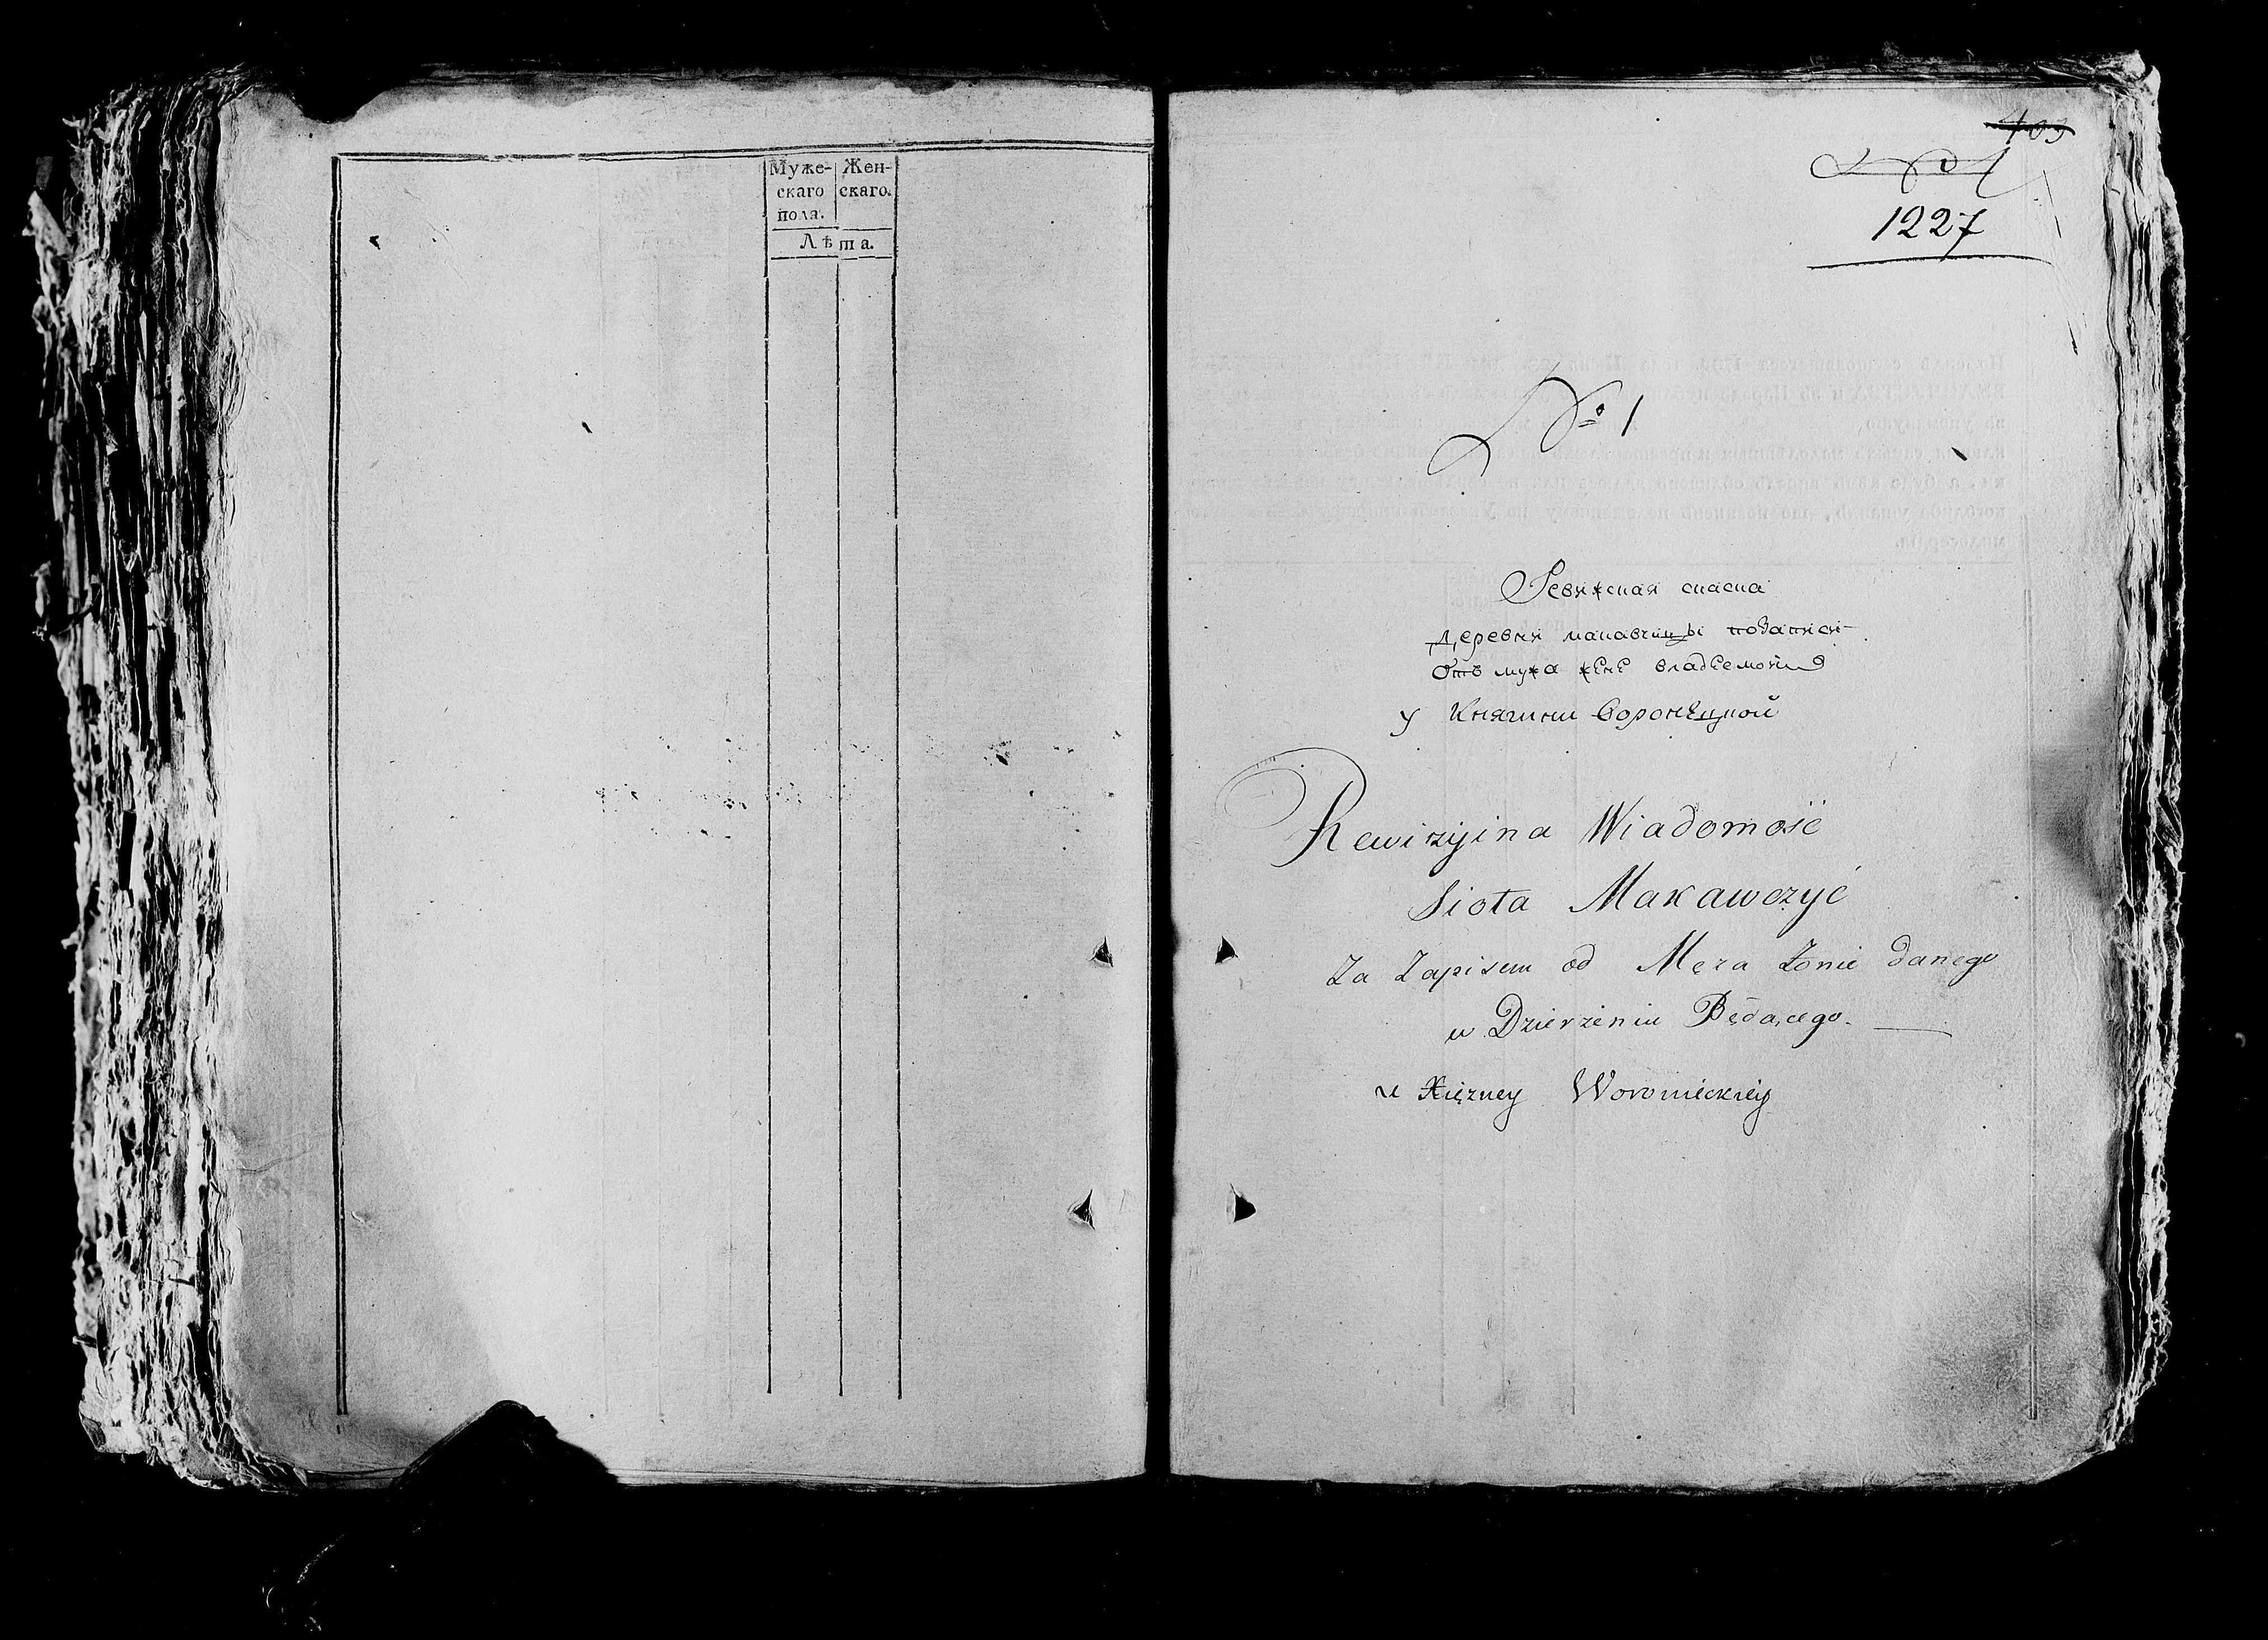 Муже-
скаго
пола.
Жен-
скаго.
Лѣта.
403
1227
№ 1
Ревижская скаска
деревни макавчицы
Отъ мужа жене владеемой
у Княгини Воронецкой
Rewizyina Wiadomość
Sioła Makawczyć
Za Zapisem od Męża Żonie danego
w Dzierżeniu Będącego.
u Xiężney Woronieckiey